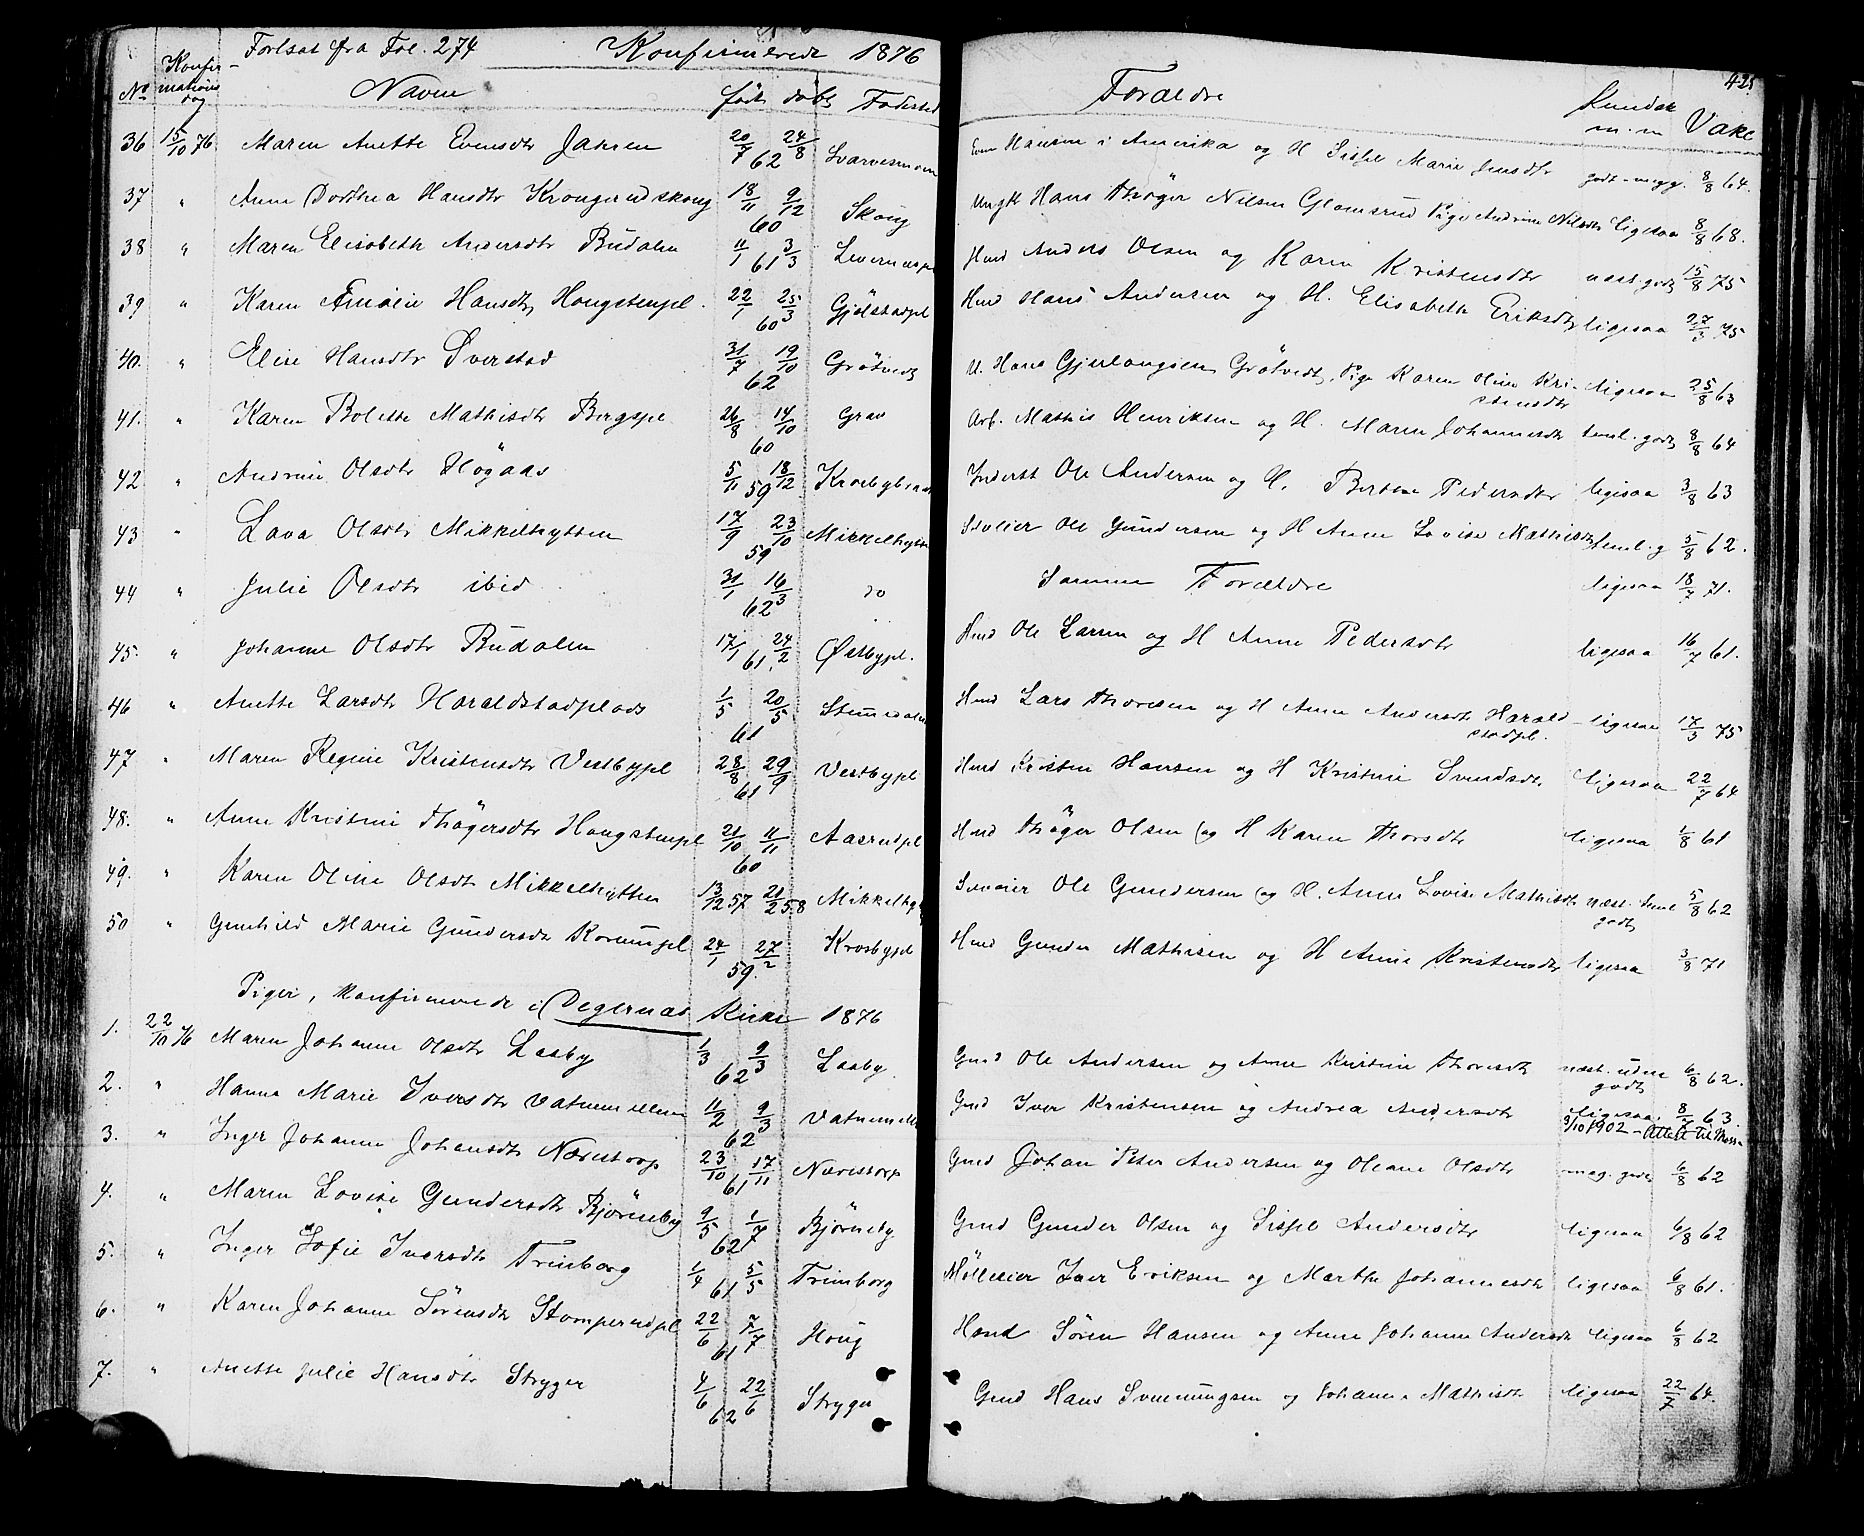 Fortsat fra Fol. 274 Konfirmerede 1876
No Konfirmations dag Navne født døbt Fødested Forældre Kundsk. m.m Vakc 425
36 15/10 76 Maren Anette Evensdtr Jahren 20/7 24/8 62 Even Hansen i Amerika og H Sissel Marie Jensdtr godt - megg. 8/8 64.
37 " Anne Dorthea Hansdtr Krongerudskoug 18/11 9/12 60 Skoug Ungk Hans Thøger Nilsen Glomsrud Pige Andrine Nilsdtr ligesaa 8/8 68.
38 " Maren Elisabeth Andersdtr Budalen 11/1 3/3 61 Hmd Anders Olsen og Karen Kristensdtr næst. godt 15/8 75
39 " Karen Amalie Hansdtr Hougstenpl. 22/1 25/3 60 Gjølstadpl Hmd Hans Andersen og H. Elisabeth Eriksdtr ligesaa 27/3 75
40. " Elise Hansdtr Sverstad 31/7 19/10 62 Grøtvedt U. Hans Gjerlaugsen Grøtvedt, Pige Karen Oline Kri-
stensdtr ligesaa 25/8 63
41. " Karen Bolette Mathisdtr Bergspl 26/8 14/10 60 Grav Arb. Mathis Henriksen og H. Maren Johannesdtr teml. godt 8/8 64
42 " Andrine Olsdtr Høgaas 5/11 18/12 59 Inderst Ole Andersen og H. Bertine Pedersdtr ligesaa 3/8 63
43 " Lava Olsdtr Mikkelhytten 17/9 23/10 59 Mikkelhytten Selveier Ole Gundersen og H Anne Lovise Mathisdtr teml. g 5/8 62.
44 " Julie Olsdtr ibid 31/1 16/3 62 do Samme Forældre ligesaa 18/7 71.
45. " Johanne Olsdtr Budalen 17/1 24/2 61. Østbypl. Hmd Ole Larsen og H Anne Pedersdtr ligesaa 16/7 61.
46 " Anette Larsdtr Haraldstadplads 1/5 20/5 61 Hmd Lars Thoresen og H Anne Andersdtr Harald-
stadpl. ligesaa 17/5 75
47 " Maren Regine Kristensdtr Vestbypl 28/8 29/9 61 Vestbypl Hmd Kristen Hansen og H Kristine Svendsdtr ligesaa 22/7 64
48. " Anne Kristine Thøgersdtr Hougstenpl 21/10 11/11 60 Aasrudpl Hmd Thøger Olsen og H Karen Thorsdtr ligesaa 1/8 61
49. " Karen Oline Olsdtr Mikkelhytten 13/12 57 21/2 58 Mikkelhyt Selveier Ole Gundersen og H. Anne Lovise Mathisdtr næst. teml godt 5/8 62
50 " Gunhild Marie Gundersdtr 24/1 27/2 59. Krosbypl Hmd Gunder Mathisen og H Anne Kristensdtr ligesaa 3/8 71
Piger, konfirmerede i Degernæs Kirke 1876
1. 22/10 76 Maren Johanne Olsdtr Lasby 1/3 9/3 62 Lasby Gmd Ole Andersen og Anne Kristine Thoresdtr næst. uden godt 6/8 62.
2. " Hanna Marie Iversdtr Vatnemellem 11/2 9/3 62 Vatnemell Gmd Iver Kristensen og Andrea Andersdtr ligesaa. 8/7 63
9/10 1902 - Attest til Moss
3. " Inger Johanne Johansdtr Næristorp 23/10 17/11 61 Næristorp Gmd Johan Peter Andersen og Oleane Olsdtr meg. godt 6/8 62
4. " Maren Lovise Gundersdtr Bjørneby 9/5 1/7 62 Bjørneby Gmd Gunder Olsen og Sissel Andersdtr ligesaa 6/8 62
5. " Inger Sofie Iversdtr Trimborg 1/4 5/5 61 Trimborg Mølleeier Iver Eriksen og Marthe Johannesdtr ligesaa 6/8 61.
6. " Karen Johanne Sørensdtr Stomperudpl 22/6 7/7 61 Houg Hmd Søren Hansen og Anne Johanne Andersdtr ligesaa 6/8 62
7. " Anette Julie Hansdtr Stryger 4/6 22/6 62 Stryger Gmd Hans Svenningsen og Johanne Mathisdtr ligesaa 22/7 64.